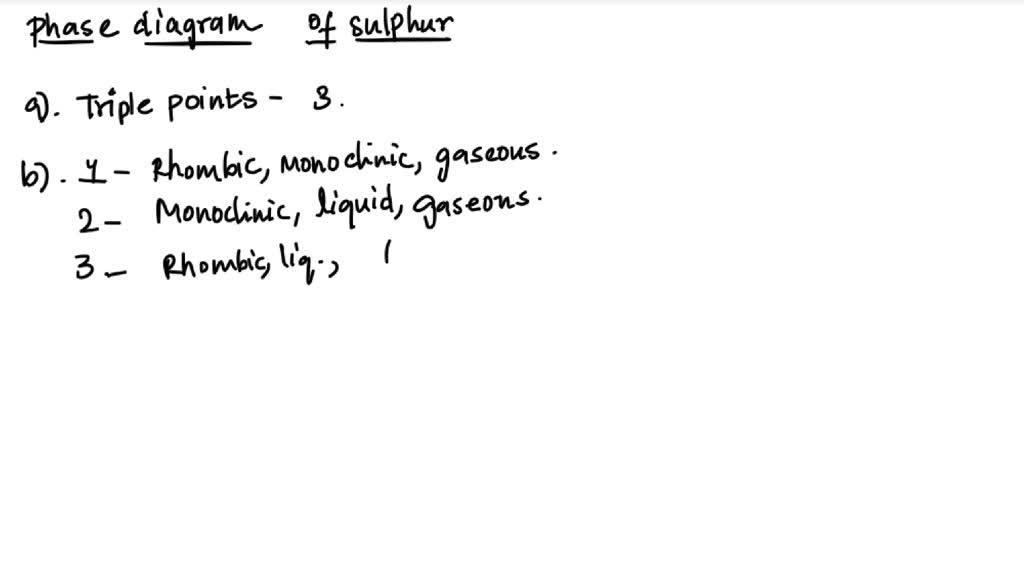 Phase diagram of sulphur
a). Triple points - 3.
b). 1 - Rhombic, Monoclinic, gaseous.
2 - Monoclinic, liquid, gaseous.
3 - Rhombic, liq.,